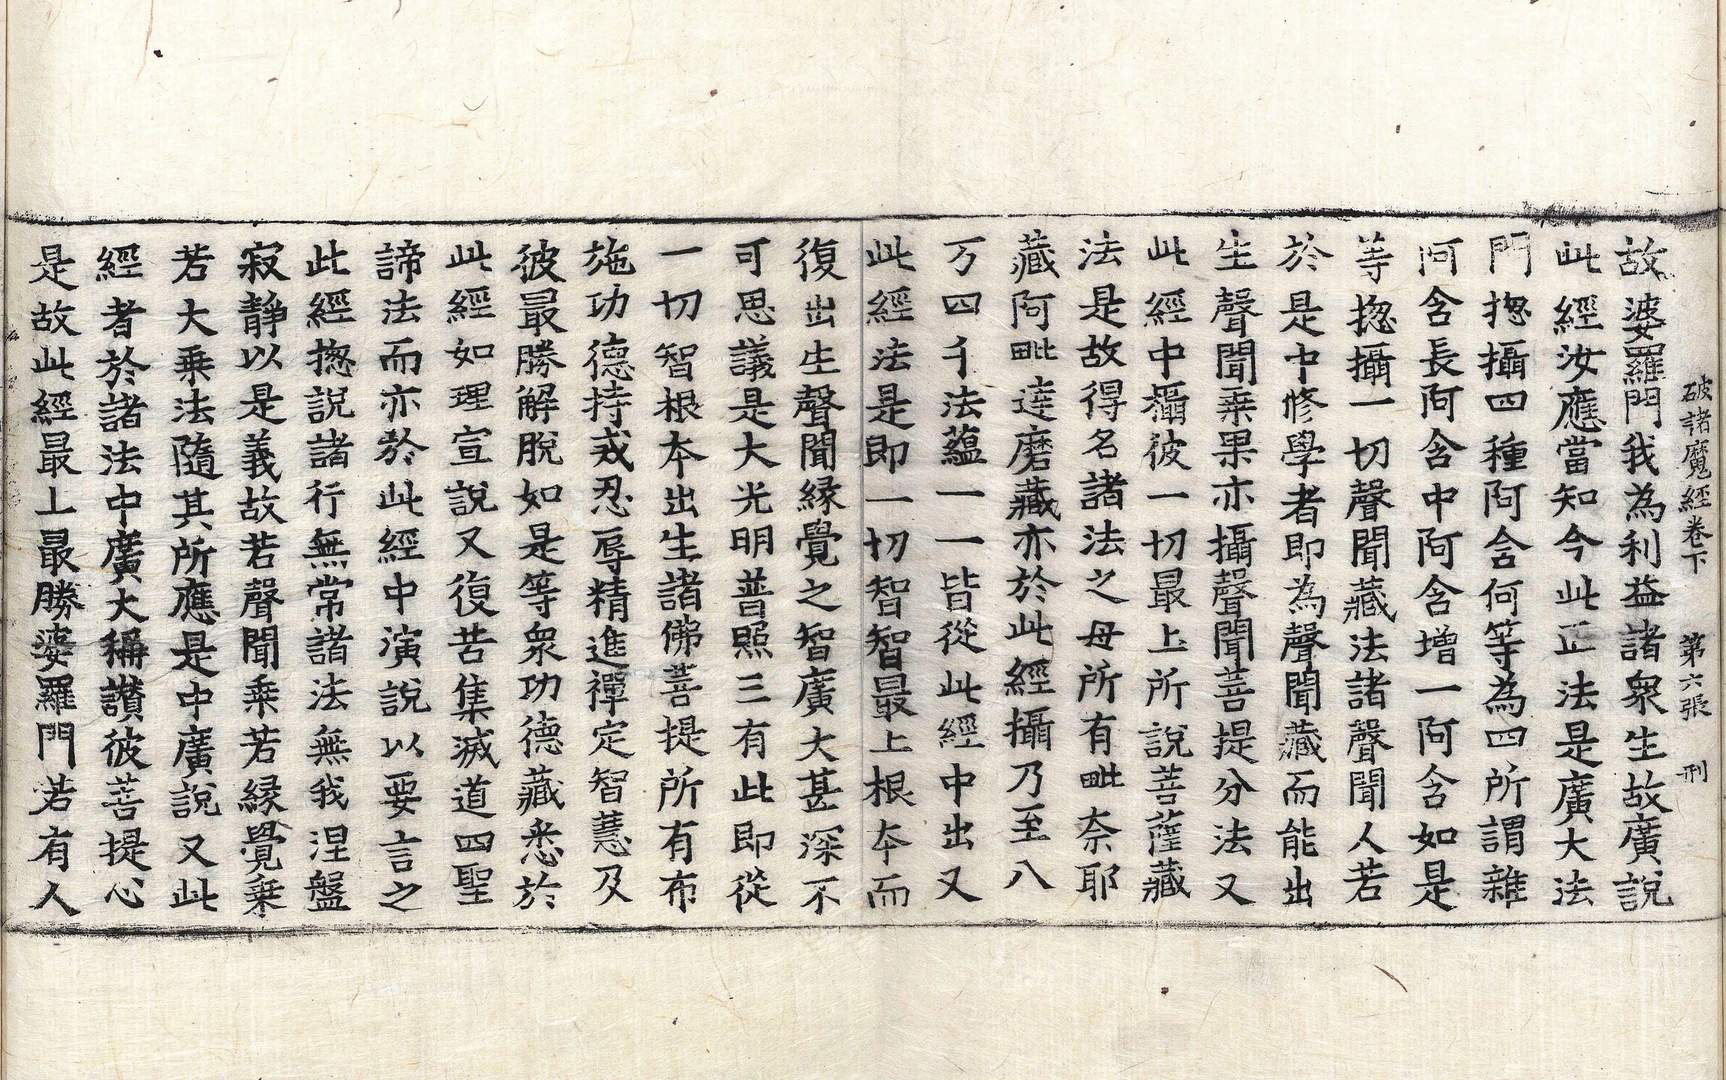 破諸魔經卷下　第六張　刑
故婆羅門我為利益諸衆生故廣說
此經汝應當知今此正法是廣大法
門揔攝四種阿含何等為四所謂雜
阿含長阿含中阿含增一阿含如是
等揔攝一切聲聞藏法諸聲聞人若
於是中修學者即為聲聞藏而能出
生聲聞乘果亦攝聲聞菩提分法又
此經中攝彼一切最上所說菩薩藏
法是故得名諸法之母所有毗奈耶
藏阿毗達磨藏亦於此經攝乃至八
万四千法蘊一一皆從此經中出又
此經法是即一切智智最上根本而
復出生聲聞縁覺之智廣大甚深不
可思議是大光明普照三有此即從
一切智根本出生諸佛菩提所有布
施功德持戒忍辱精進禪定智慧及
彼最勝解脫如是等衆功德藏悉於
此經如理宣說又復苦集滅道四聖
諦法而亦於此經中演說以要言之
此經揔說諸行無常諸法無我涅盤
寂靜以是義故若聲聞乘若縁覺乘
若大乘法隨其所應是中廣說又此
經者於諸法中廣大稱讃彼菩提心
是故此經最上最勝婆羅門若有人